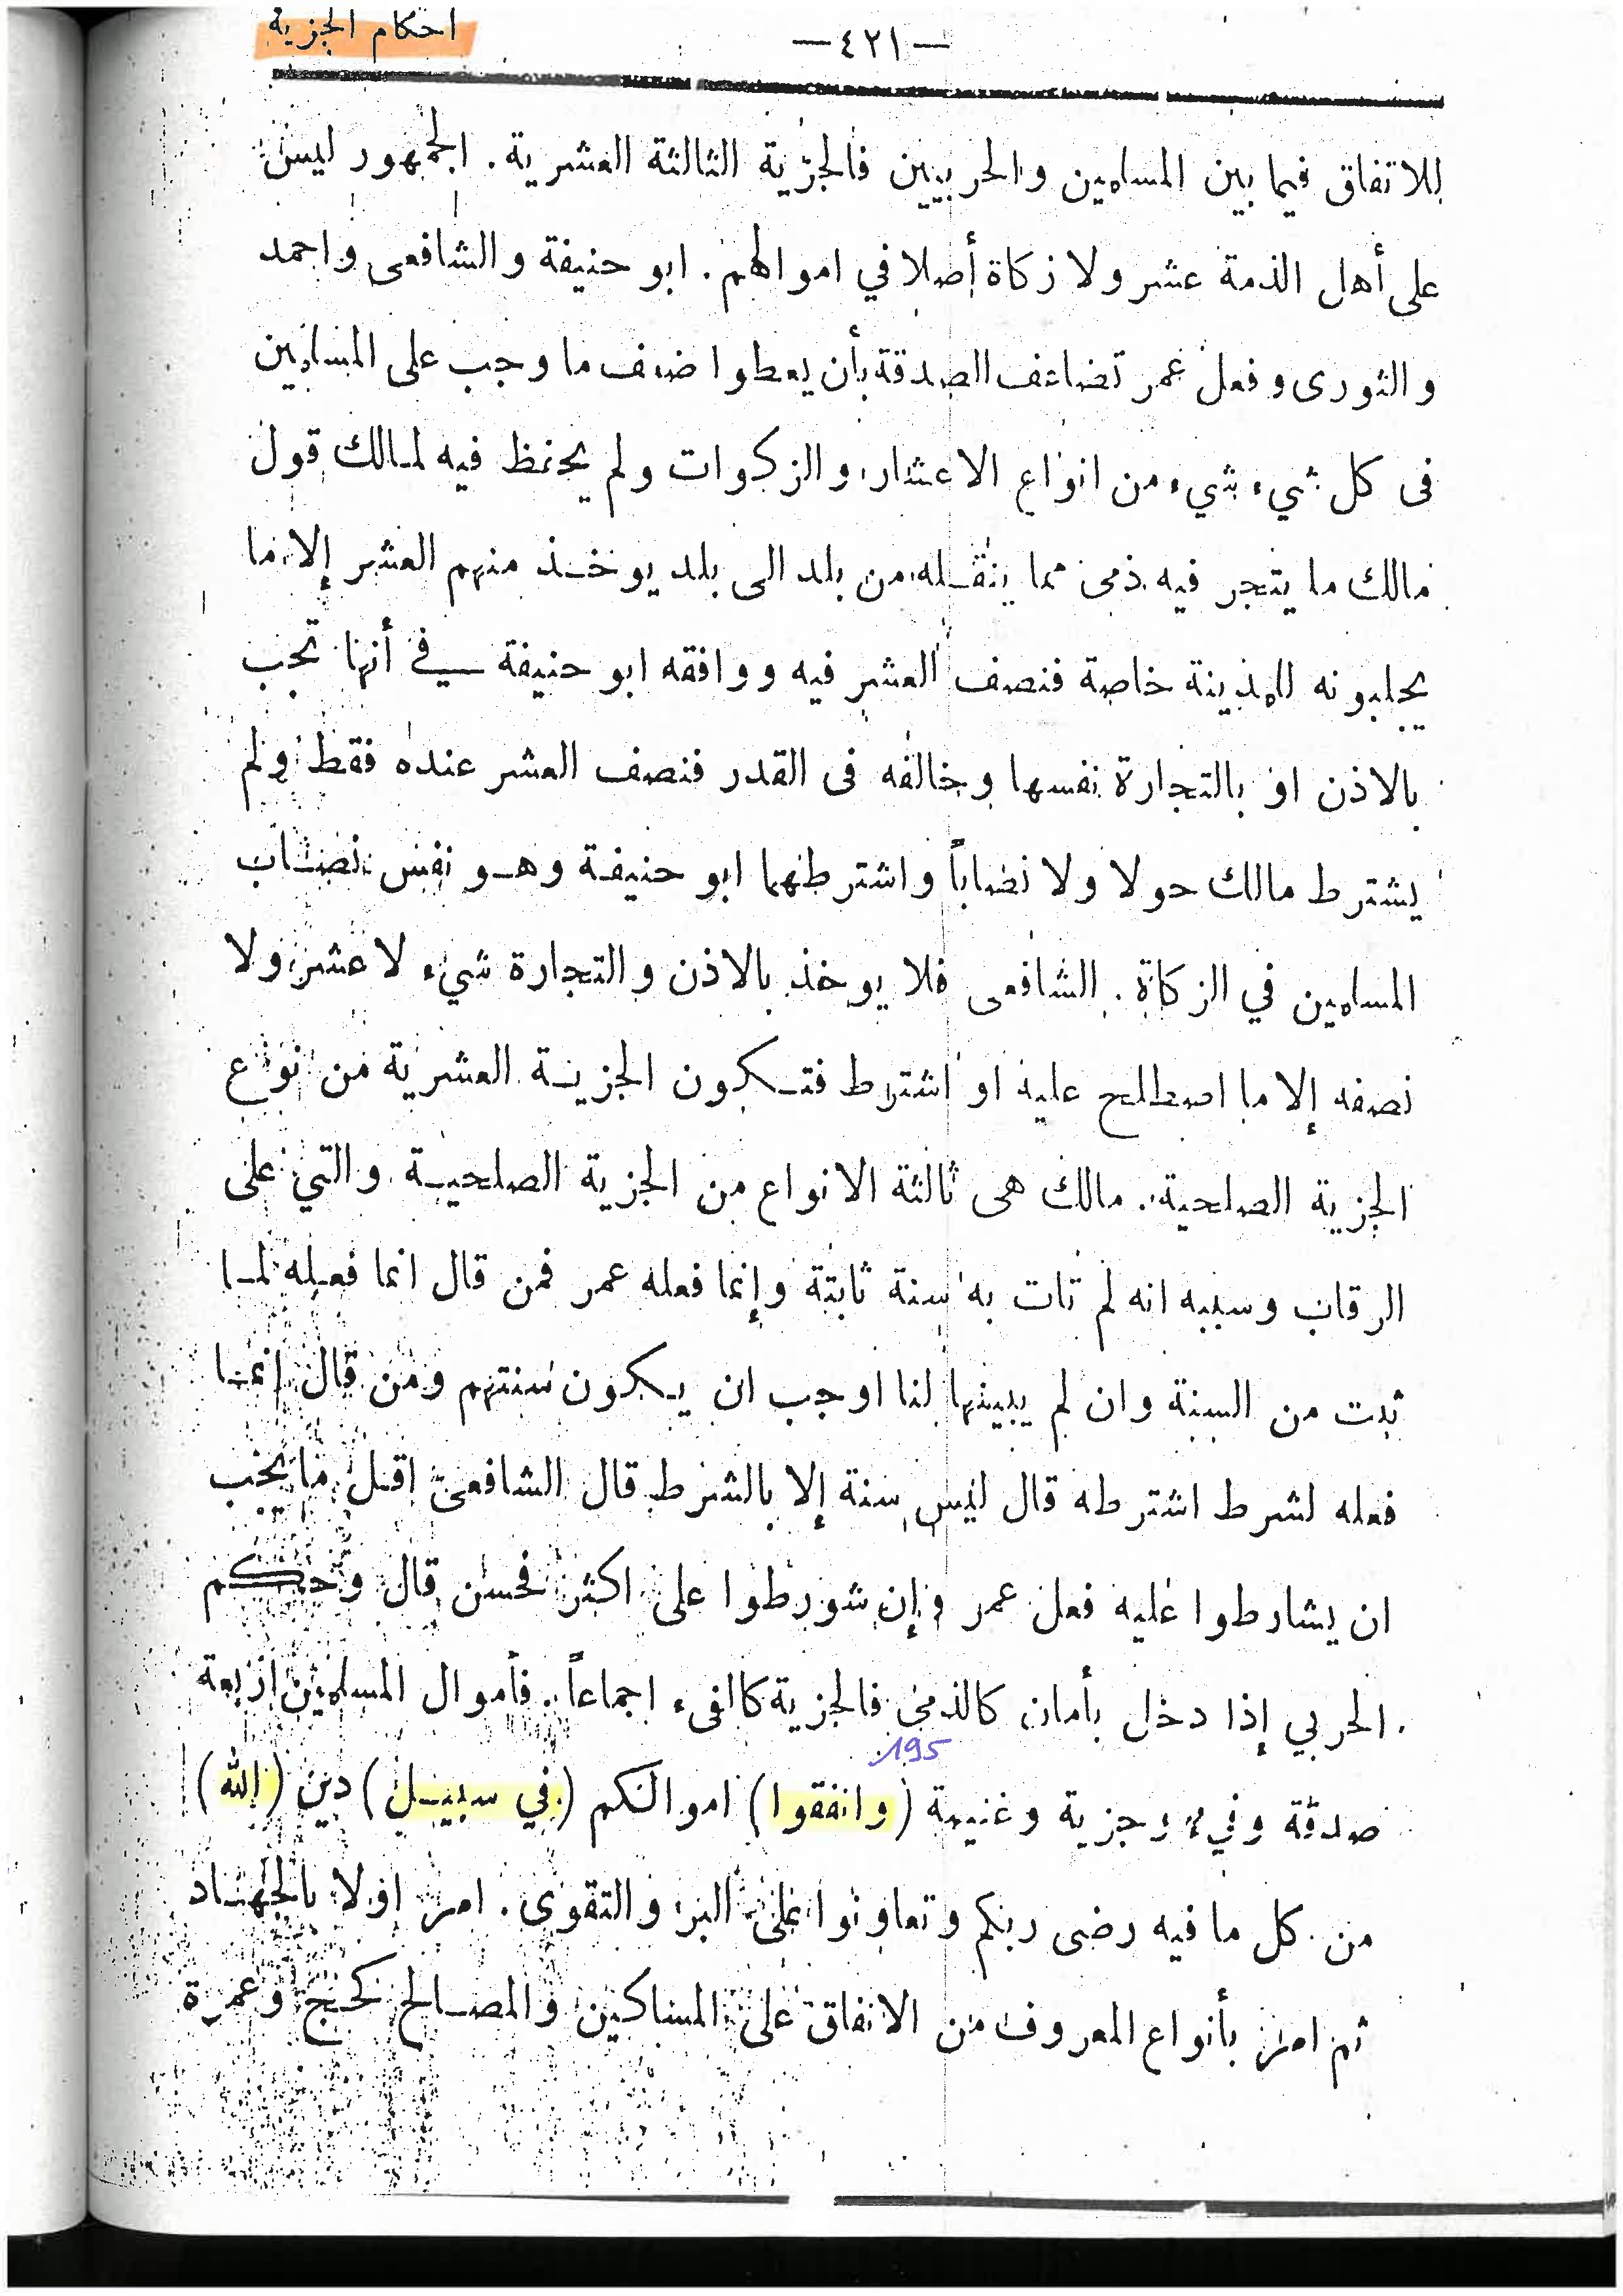 احكام الجزية
—٤٢١—
للاتفاق فيما بين المسلمين والحربيين فالجزية الثالثة العشرية. الجمهور ليس
على أهل الذمة عشر ولا زكاة أصلا في اموالهم. ابو حنيفة والشافعى واحمد
والثورى وفعل عمر تضاعف الصدقة بأن يعطوا ضعف ما وجب على المسلمين
فى كل شيء شيء من انواع الاعشار والزكوات ولم يحفظ فيه لمالك قول
مالك ما يتجر فيه ذمى مما ينقله من بلد الى بلد يوخذ منهم العشر إلا ما
يجلبونه للمدينة خاصة فنصف العشر فيه ووافقه ابو حنيفة في أنها تجب
بالاذن او بالتجارة نفسها وخالفه فى القدر فنصف العشر عنده فقط ولم
يشترط مالك حولا ولا نصاباً واشترطهما ابو حنيفة وهو نفس نصاب
المسلمين في الزكاة. الشافعى فلا يوخذ بالاذن والتجارة شيء لا عشر ولا
نصفه إلا ما اصطلح عليه او اشترط فتكون الجزية العشرية من نوع
الجزية الصلحية. مالك هى ثالثة الانواع من الجزية الصلحية والتي على
الرقاب وسببه انه لم تات به سنة ثابتة وإنما فعله عمر فمن قال انما فعله لما
ثبت من السنة وان لم يبينها لنا اوجب ان يكون سنتهم ومن قال انما
فعله لشرط اشترطه قال ليس سنة إلا بالشرط قال الشافعى اقل ما يجب
ان يشارطوا عليه فعل عمر وإن شورطوا على اكثر فحسن قال وحكم
الحربي إذا دخل بأمان كالذمى فالجزية كالفىء اجماعاً. فأموال المسلمين اربعة
195
صدقة وفيء وجزية وغنيمة (وانفقوا) اموالكم (في سبيل) دين (الله)
من كل ما فيه رضى ربكم وتعاونوا على البر والتقوى. امر اولا بالجهاد
ثم امر بأنواع المعروف من الانفاق على المساكين والمصالح كحج وعمرة